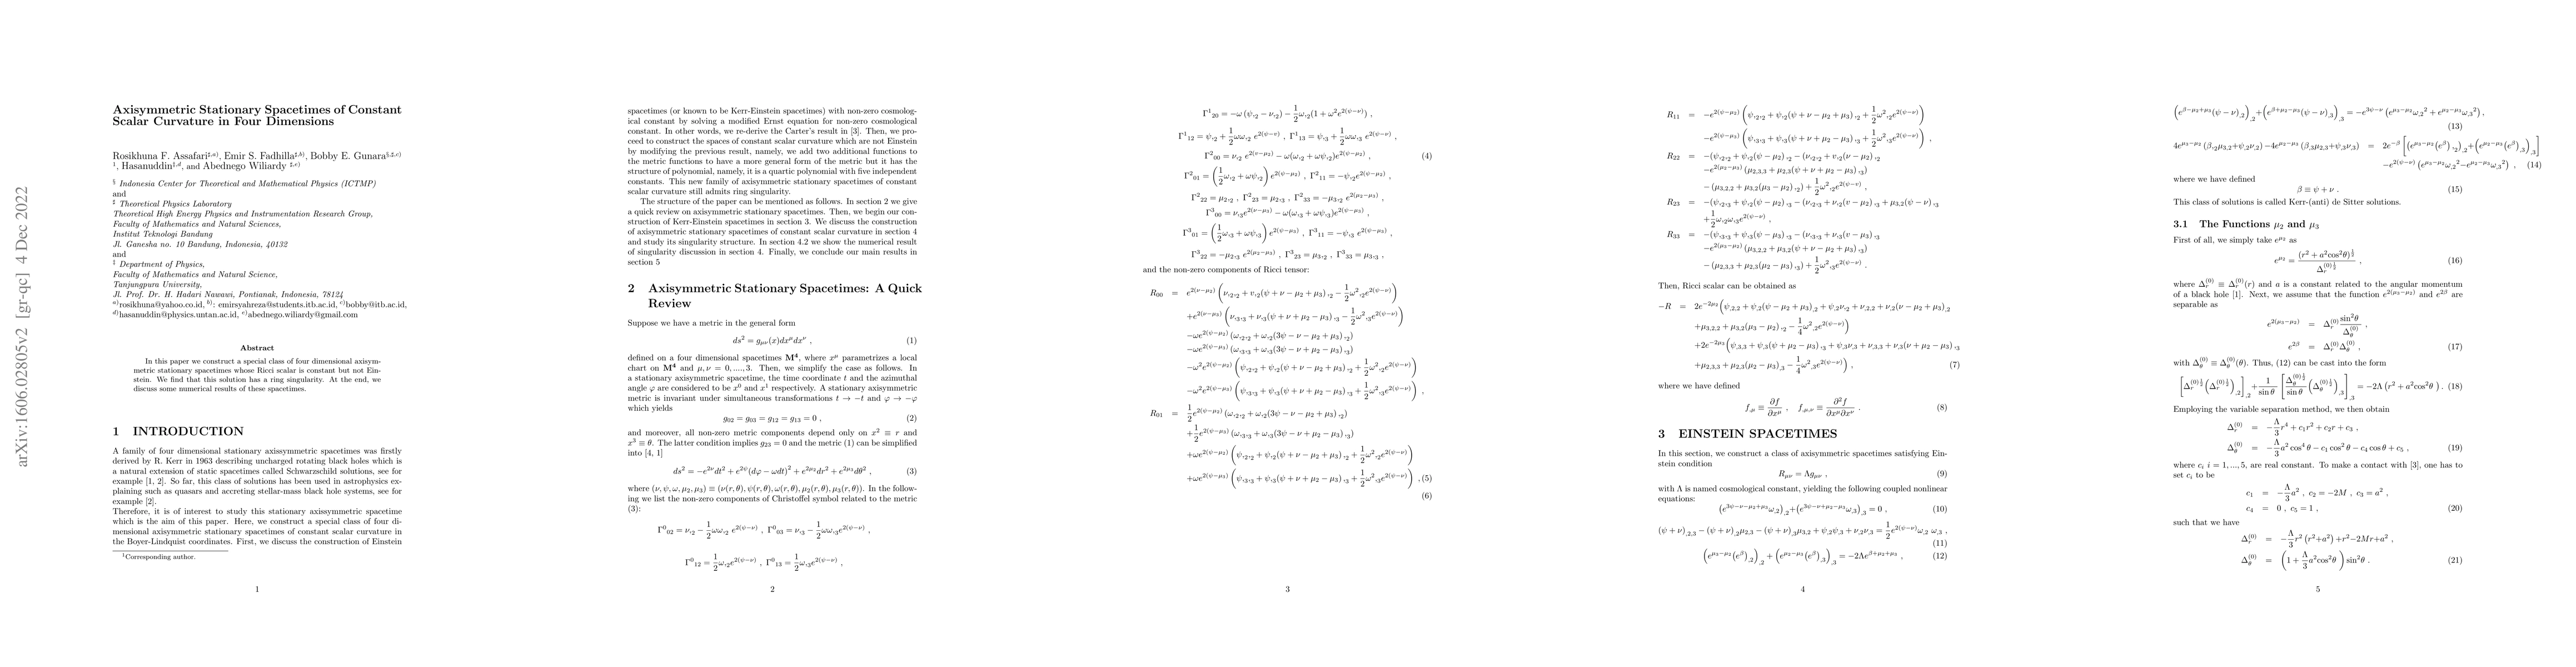 arXiv:1606.02805v2 [gr-qc] 4 Dec 2022
Axisymmetric Stationary Spacetimes of Constant
Scalar Curvature in Four Dimensions
Rosikhuna F. Assafari‡,a), Emir S. Fadhilla‡,b), Bobby E. Gunara§,‡,c)
1, Hasanuddin‡,d, and Abednego Wiliardy ‡,e)
§ Indonesia Center for Theoretical and Mathematical Physics (ICTMP)
and
‡ Theoretical Physics Laboratory
Theoretical High Energy Physics and Instrumentation Research Group,
Faculty of Mathematics and Natural Sciences,
Institut Teknologi Bandung
Jl. Ganesha no. 10 Bandung, Indonesia, 40132
and
‡ Department of Physics,
Faculty of Mathematics and Natural Science,
Tanjungpura University,
Jl. Prof. Dr. H. Hadari Nawawi, Pontianak, Indonesia, 78124
a)rosikhuna@yahoo.co.id, b): emirsyahreza@students.itb.ac.id, c)bobby@itb.ac.id,
d)hasanuddin@physics.untan.ac.id, e)abednego.wiliardy@gmail.com
Abstract
In this paper we construct a special class of four dimensional axisym-
metric stationary spacetimes whose Ricci scalar is constant but not Ein-
stein. We find that this solution has a ring singularity. At the end, we
discuss some numerical results of these spacetimes.
1 INTRODUCTION
A family of four dimensional stationary axissymmetric spacetimes was firstly
derived by R. Kerr in 1963 describing uncharged rotating black holes which is
a natural extension of static spacetimes called Schwarzschild solutions, see for
example [1, 2]. So far, this class of solutions has been used in astrophysics ex-
plaining such as quasars and accreting stellar-mass black hole systems, see for
example [2].
Therefore, it is of interest to study this stationary axisymmetric spacetime
which is the aim of this paper. Here, we construct a special class of four di-
mensional axisymmetric stationary spacetimes of constant scalar curvature in
the Boyer-Lindquist coordinates. First, we discuss the construction of Einstein
1Corresponding author.
1
spacetimes (or known to be Kerr-Einstein spacetimes) with non-zero cosmolog-
ical constant by solving a modified Ernst equation for non-zero cosmological
constant. In other words, we re-derive the Carter's result in [3]. Then, we pro-
ceed to construct the spaces of constant scalar curvature which are not Einstein
by modifying the previous result, namely, we add two additional functions to
the metric functions to have a more general form of the metric but it has the
structure of polynomial, namely, it is a quartic polynomial with five independent
constants. This new family of axisymmetric stationary spacetimes of constant
scalar curvature still admits ring singularity.
The structure of the paper can be mentioned as follows. In section 2 we give
a quick review on axisymmetric stationary spacetimes. Then, we begin our con-
struction of Kerr-Einstein spacetimes in section 3. We discuss the construction
of axisymmetric stationary spacetimes of constant scalar curvature in section 4
and study its singularity structure. In section 4.2 we show the numerical result
of singularity discussion in section 4. Finally, we conclude our main results in
section 5
2 Axisymmetric Stationary Spacetimes: A Quick
Review
Suppose we have a metric in the general form
ds² = gμν(x)dx^μ dx^ν , (1)
defined on a four dimensional spacetimes M⁴, where x^μ parametrizes a local
chart on M⁴ and μ, ν = 0, ...., 3. Then, we simplify the case as follows. In
a stationary axisymmetric spacetime, the time coordinate t and the azimuthal
angle φ are considered to be x⁰ and x¹ respectively. A stationary axisymmetric
metric is invariant under simultaneous transformations t → −t and φ → −φ
which yields
g02 = g03 = g12 = g13 = 0 , (2)
and moreover, all non-zero metric components depend only on x² ≡ r and
x³ ≡ θ. The latter condition implies g23 = 0 and the metric (1) can be simplified
into [4, 1]
ds² = −e^{2ν}dt² + e^{2ψ}(dφ − ωdt)² + e^{2μ2}dr² + e^{2μ3}dθ² , (3)
where (ν, ψ, ω, μ2, μ3) ≡ (ν(r, θ), ψ(r, θ), ω(r, θ), μ2(r, θ), μ3(r, θ)). In the follow-
ing we list the non-zero components of Christoffel symbol related to the metric
(3):
Γ⁰02 = ν,2 − ½ωω,2 e^{2(ψ−ν)} , Γ⁰03 = ν,3 − ½ωω,3 e^{2(ψ−ν)} ,
Γ⁰12 = ½ω,2 e^{2(ψ−ν)} , Γ⁰13 = ½ω,3 e^{2(ψ−ν)} ,
2
Γ¹20 = −ω(ψ,2 − ν,2) − ½ω,2(1 + ω²e^{2(ψ−ν)}) ,
Γ¹12 = ψ,2 + ½ωω,2 e^{2(ψ−ν)} , Γ¹13 = ψ,3 + ½ωω,3 e^{2(ψ−ν)} ,
Γ²00 = ν,2 e^{2(ν−μ2)} − ω(ω,2 + ωψ,2)e^{2(ψ−μ2)} , (4)
Γ²01 = (½ω,2 + ωψ,2) e^{2(ψ−μ2)} , Γ²11 = −ψ,2 e^{2(ψ−μ2)} ,
Γ²22 = μ2,2 , Γ²23 = μ2,3 , Γ²33 = −μ3,2 e^{2(μ3−μ2)} ,
Γ³00 = ν,3 e^{2(ν−μ3)} − ω(ω,3 + ωψ,3)e^{2(ψ−μ3)} ,
Γ³01 = (½ω,3 + ωψ,3) e^{2(ψ−μ3)} , Γ³11 = −ψ,3 e^{2(ψ−μ3)} ,
Γ³22 = −μ2,3 e^{2(μ2−μ3)} , Γ³23 = μ3,2 , Γ³33 = μ3,3 ,
and the non-zero components of Ricci tensor:
R00 = e^{2(ν−μ2)} (ν,2,2 + ν,2(ψ + ν − μ2 + μ3),2 − ½ω²,2 e^{2(ψ−ν)})
+e^{2(ν−μ3)} (ν,3,3 + ν,3(ψ + ν + μ2 − μ3),3 − ½ω²,3 e^{2(ψ−ν)})
−ωe^{2(ψ−μ2)} (ω,2,2 + ω,2(3ψ − ν − μ2 + μ3),2)
−ωe^{2(ψ−μ3)} (ω,3,3 + ω,3(3ψ − ν + μ2 − μ3),3)
−ω²e^{2(ψ−μ2)} (ψ,2,2 + ψ,2(ψ + ν − μ2 + μ3),2 + ½ω²,2 e^{2(ψ−ν)})
−ω²e^{2(ψ−μ3)} (ψ,3,3 + ψ,3(ψ + ν + μ2 − μ3),3 + ½ω²,3 e^{2(ψ−ν)}) ,
R01 = ½e^{2(ψ−μ2)} (ω,2,2 + ω,2(3ψ − ν − μ2 + μ3),2)
+½e^{2(ψ−μ3)} (ω,3,3 + ω,3(3ψ − ν + μ2 − μ3),3)
+ωe^{2(ψ−μ2)} (ψ,2,2 + ψ,2(ψ + ν − μ2 + μ3),2 + ½ω²,2 e^{2(ψ−ν)})
+ωe^{2(ψ−μ3)} (ψ,3,3 + ψ,3(ψ + ν + μ2 − μ3),3 + ½ω²,3 e^{2(ψ−ν)}) , (5)
(6)
3
R11 = −e^{2(ψ−μ2)} (ψ,2,2 + ψ,2(ψ + ν − μ2 + μ3),2 + ½ω²,2 e^{2(ψ−ν)})
−e^{2(ψ−μ3)} (ψ,3,3 + ψ,3(ψ + ν + μ2 − μ3),3 + ½ω²,3 e^{2(ψ−ν)}) ,
R22 = −(ψ,2,2 + ψ,2(ψ − μ2),2 − (ν,2,2 + ν,2(ν − μ2),2
−e^{2(μ2−μ3)} (μ2,3,3 + μ2,3(ψ + ν + μ2 − μ3),3)
− (μ3,2,2 + μ3,2(μ3 − μ2),2) + ½ω²,2 e^{2(ψ−ν)} ,
R23 = −(ψ,2,3 + ψ,2(ψ − μ2),3 − (ν,2,3 + ν,2(ν − μ2),3 + μ3,2(ψ − ν),3
+½ω,2ω,3 e^{2(ψ−ν)} ,
R33 = −(ψ,3,3 + ψ,3(ψ − μ3),3 − (ν,3,3 + ν,3(ν − μ3),3
−e^{2(μ3−μ2)} (μ3,2,2 + μ3,2(ψ + ν − μ2 + μ3),2)
− (μ2,3,3 + μ2,3(μ2 − μ3),3) + ½ω²,3 e^{2(ψ−ν)} .
Then, Ricci scalar can be obtained as
−R = 2e^{−2μ2}(ψ,2,2 + ψ,2(ψ − μ2 + μ3),2 + ψ,2ν,2 + ν,2,2 + ν,2(ν − μ2 + μ3),2
+μ3,2,2 + μ3,2(μ3 − μ2),2 − ¼ω²,2 e^{2(ψ−ν)})
+2e^{−2μ3}(ψ,3,3 + ψ,3(ψ + μ2 − μ3),3 + ψ,3ν,3 + ν,3,3 + ν,3(ν + μ2 − μ3),3
+μ2,3,3 + μ2,3(μ2 − μ3),3 − ¼ω²,3 e^{2(ψ−ν)}) , (7)
where we have defined
f,μ ≡ ∂f/∂x^μ , f,μ,ν ≡ ∂²f/∂x^μ∂x^ν . (8)
3 EINSTEIN SPACETIMES
In this section, we construct a class of axisymmetric spacetimes satisfying Ein-
stein condition
Rμν = Λgμν , (9)
with Λ is named cosmological constant, yielding the following coupled nonlinear
equations:
(e^{3ψ−ν−μ2+μ3}ω,2),2+(e^{3ψ−ν+μ2−μ3}ω,3),3 = 0 , (10)
(ψ + ν),2,3 − (ψ + ν),2μ2,3 − (ψ + ν),3μ3,2 + ψ,2ψ,3 + ν,2ν,3 = ½e^{2(ψ−ν)}ω,2 ω,3 ,
(11)
(e^{μ3−μ2}(e^β),2),2 + (e^{μ2−μ3}(e^β),3),3 = −2Λe^{β+μ2+μ3} , (12)
4
(e^{β−μ2+μ3}(ψ − ν),2),2 +(e^{β+μ2−μ3}(ψ − ν),3),3 = −e^{3ψ−ν} (e^{μ3−μ2}ω,2² + e^{μ2−μ3}ω,3²) ,
(13)
4e^{μ3−μ2} (β,2μ3,2+ψ,2ν,2) −4e^{μ2−μ3} (β,3μ2,3+ψ,3ν,3) = 2e^{−β} [(e^{μ3−μ2}(e^β),2),2+(e^{μ2−μ3}(e^β),3),3]
−e^{2(ψ−ν)} (e^{μ3−μ2}ω,2²−e^{μ2−μ3}ω,3²) , (14)
where we have defined
β ≡ ψ + ν . (15)
This class of solutions is called Kerr-(anti) de Sitter solutions.
3.1 The Functions μ2 and μ3
First of all, we simply take e^{μ2} as
e^{μ2} = (r² + a²cos²θ)^{1/2} / Δr^{(0)1/2} , (16)
where Δr^{(0)} ≡ Δr^{(0)}(r) and a is a constant related to the angular momentum
of a black hole [1]. Next, we assume that the function e^{2(μ3−μ2)} and e^{2β} are
separable as
e^{2(μ3−μ2)} = Δr^{(0)} sin²θ/Δθ^{(0)} ,
e^{2β} = Δr^{(0)}Δθ^{(0)} , (17)
with Δθ^{(0)} ≡ Δθ^{(0)}(θ). Thus, (12) can be cast into the form
[Δr^{(0)1/2}(Δr^{(0)1/2}),2],2 + 1/sin θ [Δθ^{(0)1/2}/sin θ (Δθ^{(0)1/2}),3],3 = −2Λ (r² + a²cos²θ) . (18)
Employing the variable separation method, we then obtain
Δr^{(0)} = −Λ/3 r⁴ + c1r² + c2r + c3 ,
Δθ^{(0)} = −Λ/3 a² cos⁴ θ − c1 cos² θ − c4 cos θ + c5 , (19)
where ci i = 1, ..., 5, are real constant. To make a contact with [3], one has to
set ci to be
c1 = −Λ/3 a² , c2 = −2M , c3 = a² ,
c4 = 0 , c5 = 1 , (20)
such that we have
Δr^{(0)} = −Λ/3 r² (r²+a²) +r²−2Mr+a² ,
Δθ^{(0)} = (1 + Λ/3 a²cos²θ) sin²θ . (21)
5